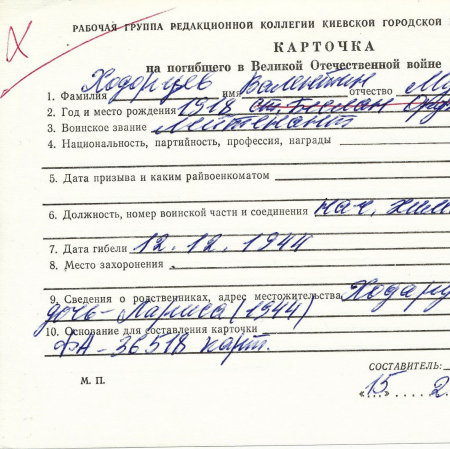 РАБОЧАЯ ГРУППА РЕДАКЦИОННОЙ КОЛЛЕГИИ КИЕВСКОЙ ГОРОДСКОЙ
КАРТОЧКА
на погибшего в Великой Отечественной войне
1. Фамилия Ходорцев имя Валентин отчество
2. Год и место рождения 1918 ст.
3. Воинское звание лейтенант
4. Национальность, партийность, профессия, награды
5. Дата призыва и каким райвоенкоматом
6. Должность, номер воинской части и соединения нач. хим
7. Дата гибели 12.12.1944
8. Место захоронения
9. Сведения о родственниках, адрес местожительства
дочь - Лариса (1944)
10. Основание для составления карточки
ФА-36518 карт.
СОСТАВИТЕЛЬ:
М. П. «15» 2.